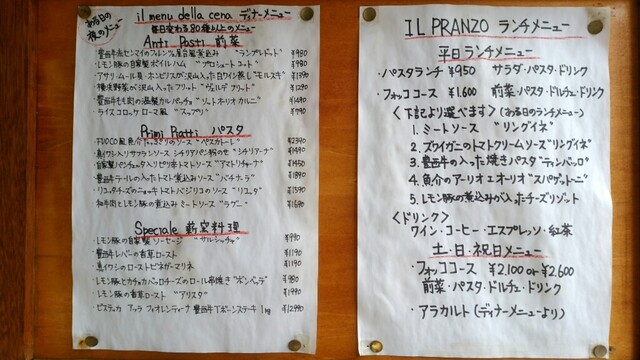 ある日の
夜のメニュー
il menu della cena ディナーメニュー
毎日変わる80種以上のメニュー
Anti Pasti 前菜
豊田牛ホミンマイのフィレンツェ屋台風煮込み "ランプレドット" ¥980
レモン豚の自家製ボイルハム "プロシュートコット" ¥980
アサリ・ムール貝・ホンビノスが沢山入った白ワイン蒸し"モルスキ" ¥1390
横浜野菜が沢山入ったフリット "ヴェルデ フリット" ¥1290
豊田牛もも肉の温製カルパッチョ "ソットオーリオ カルニ" ¥1490
ライスコロッケ ローマ風 "スップリ" ¥790
Primi Piatti パスタ
FUOCO風魚介たっぷりのソース "ペスカトーレ" ¥2390
魚イワシ入りサフランソース シチリアパン粉のせ "シチリアーナ" ¥1490
自家製パンチェッタ入りピリ辛トマトソース "アマトリチャーナ" ¥1450
豊田牛テールの入ったトマト煮込ソース "バチナーラ" ¥1890
リコッタチーズのニョッキ トマトバジリコのソース "リコッタ" ¥1590
和牛肉とレモン豚の煮込みミートソース "ラグー" ¥1690
Speciale 薪窯料理
・レモン豚の自家製ソーセージ "サルシッチャ" ¥990
・豊田牛レバーの香草ロースト ¥1190
・魚イワシのローストビネガーマリネ ¥1190
・レモン豚とカチョカバロチーズのロール串焼き "ボンベッテ" ¥980
・レモン豚の香草ロースト "アリスタ" ¥1990
・ビステッカ アッラ フィオレンティーナ 豊田牛Tボーンステーキ 1kg ¥12990
IL PRANZO ランチメニュー
平日ランチメニュー
・パスタランチ ¥950 サラダ・パスタ・ドリンク
・フォッココース ¥1.600 前菜・パスタ・ドルチェ・ドリンク
〈下記より選べます〉(ある日のランチメニュー)
1. ミートソース "リングイネ"
2. ズワイガニのトマトクリームソース"リングイネ"
3. 豊田牛の入った焼きパスタ"ティンバッロ"
4. 魚介のアーリオエオーリオ"スパゲットーニ"
5. レモン豚の煮込みが入ったチーズリゾット
〈ドリンク〉
ワイン・コーヒー・エスプレッソ・紅茶
土・日・祝日メニュー
・フォッココース ¥2.100 or ¥2.600
前菜・パスタ・ドルチェ・ドリンク
・アラカルト (ディナーメニューより)